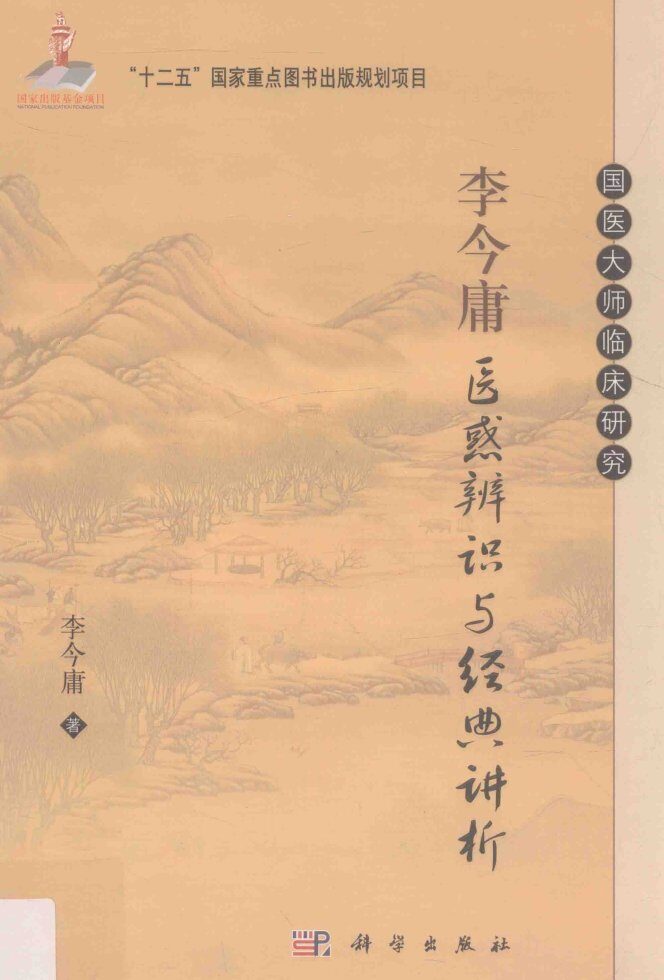 "十二五"国家重点图书出版规划项目
国家出版基金项目
NATIONAL PUBLICATION FOUNDATION
国医大师临床研究
李今庸医惑辨识与经典讲析
李今庸 著
SP 科学出版社